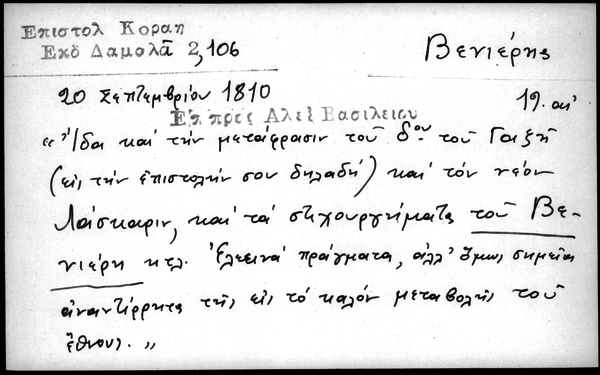 Επιστολ Κοραη
Εκδ Δαμαλᾶ 2,106
Βενιέρης
20 Σεπτεμβρίου 1810
19. αἰ
Επ προς Αλεξ Βασιλειου
«Ἴδα καὶ τὴν μετάφρασιν τοῦ δου τοῦ Γαζῆ
(εἰς τὴν ἐπιστολήν σου δηλαδή) καὶ τὸν νέον
Λάσκαριν, καὶ τὰ στιχουργήματα τοῦ Βε-
νιέρη κτλ. Ἐλεεινὰ πράγματα, ἀλλ' ὅμως σημεῖα
ἀναντίρρητα τῆς εἰς τὸ καλὸν μεταβολῆς τοῦ
ἔθνους.»